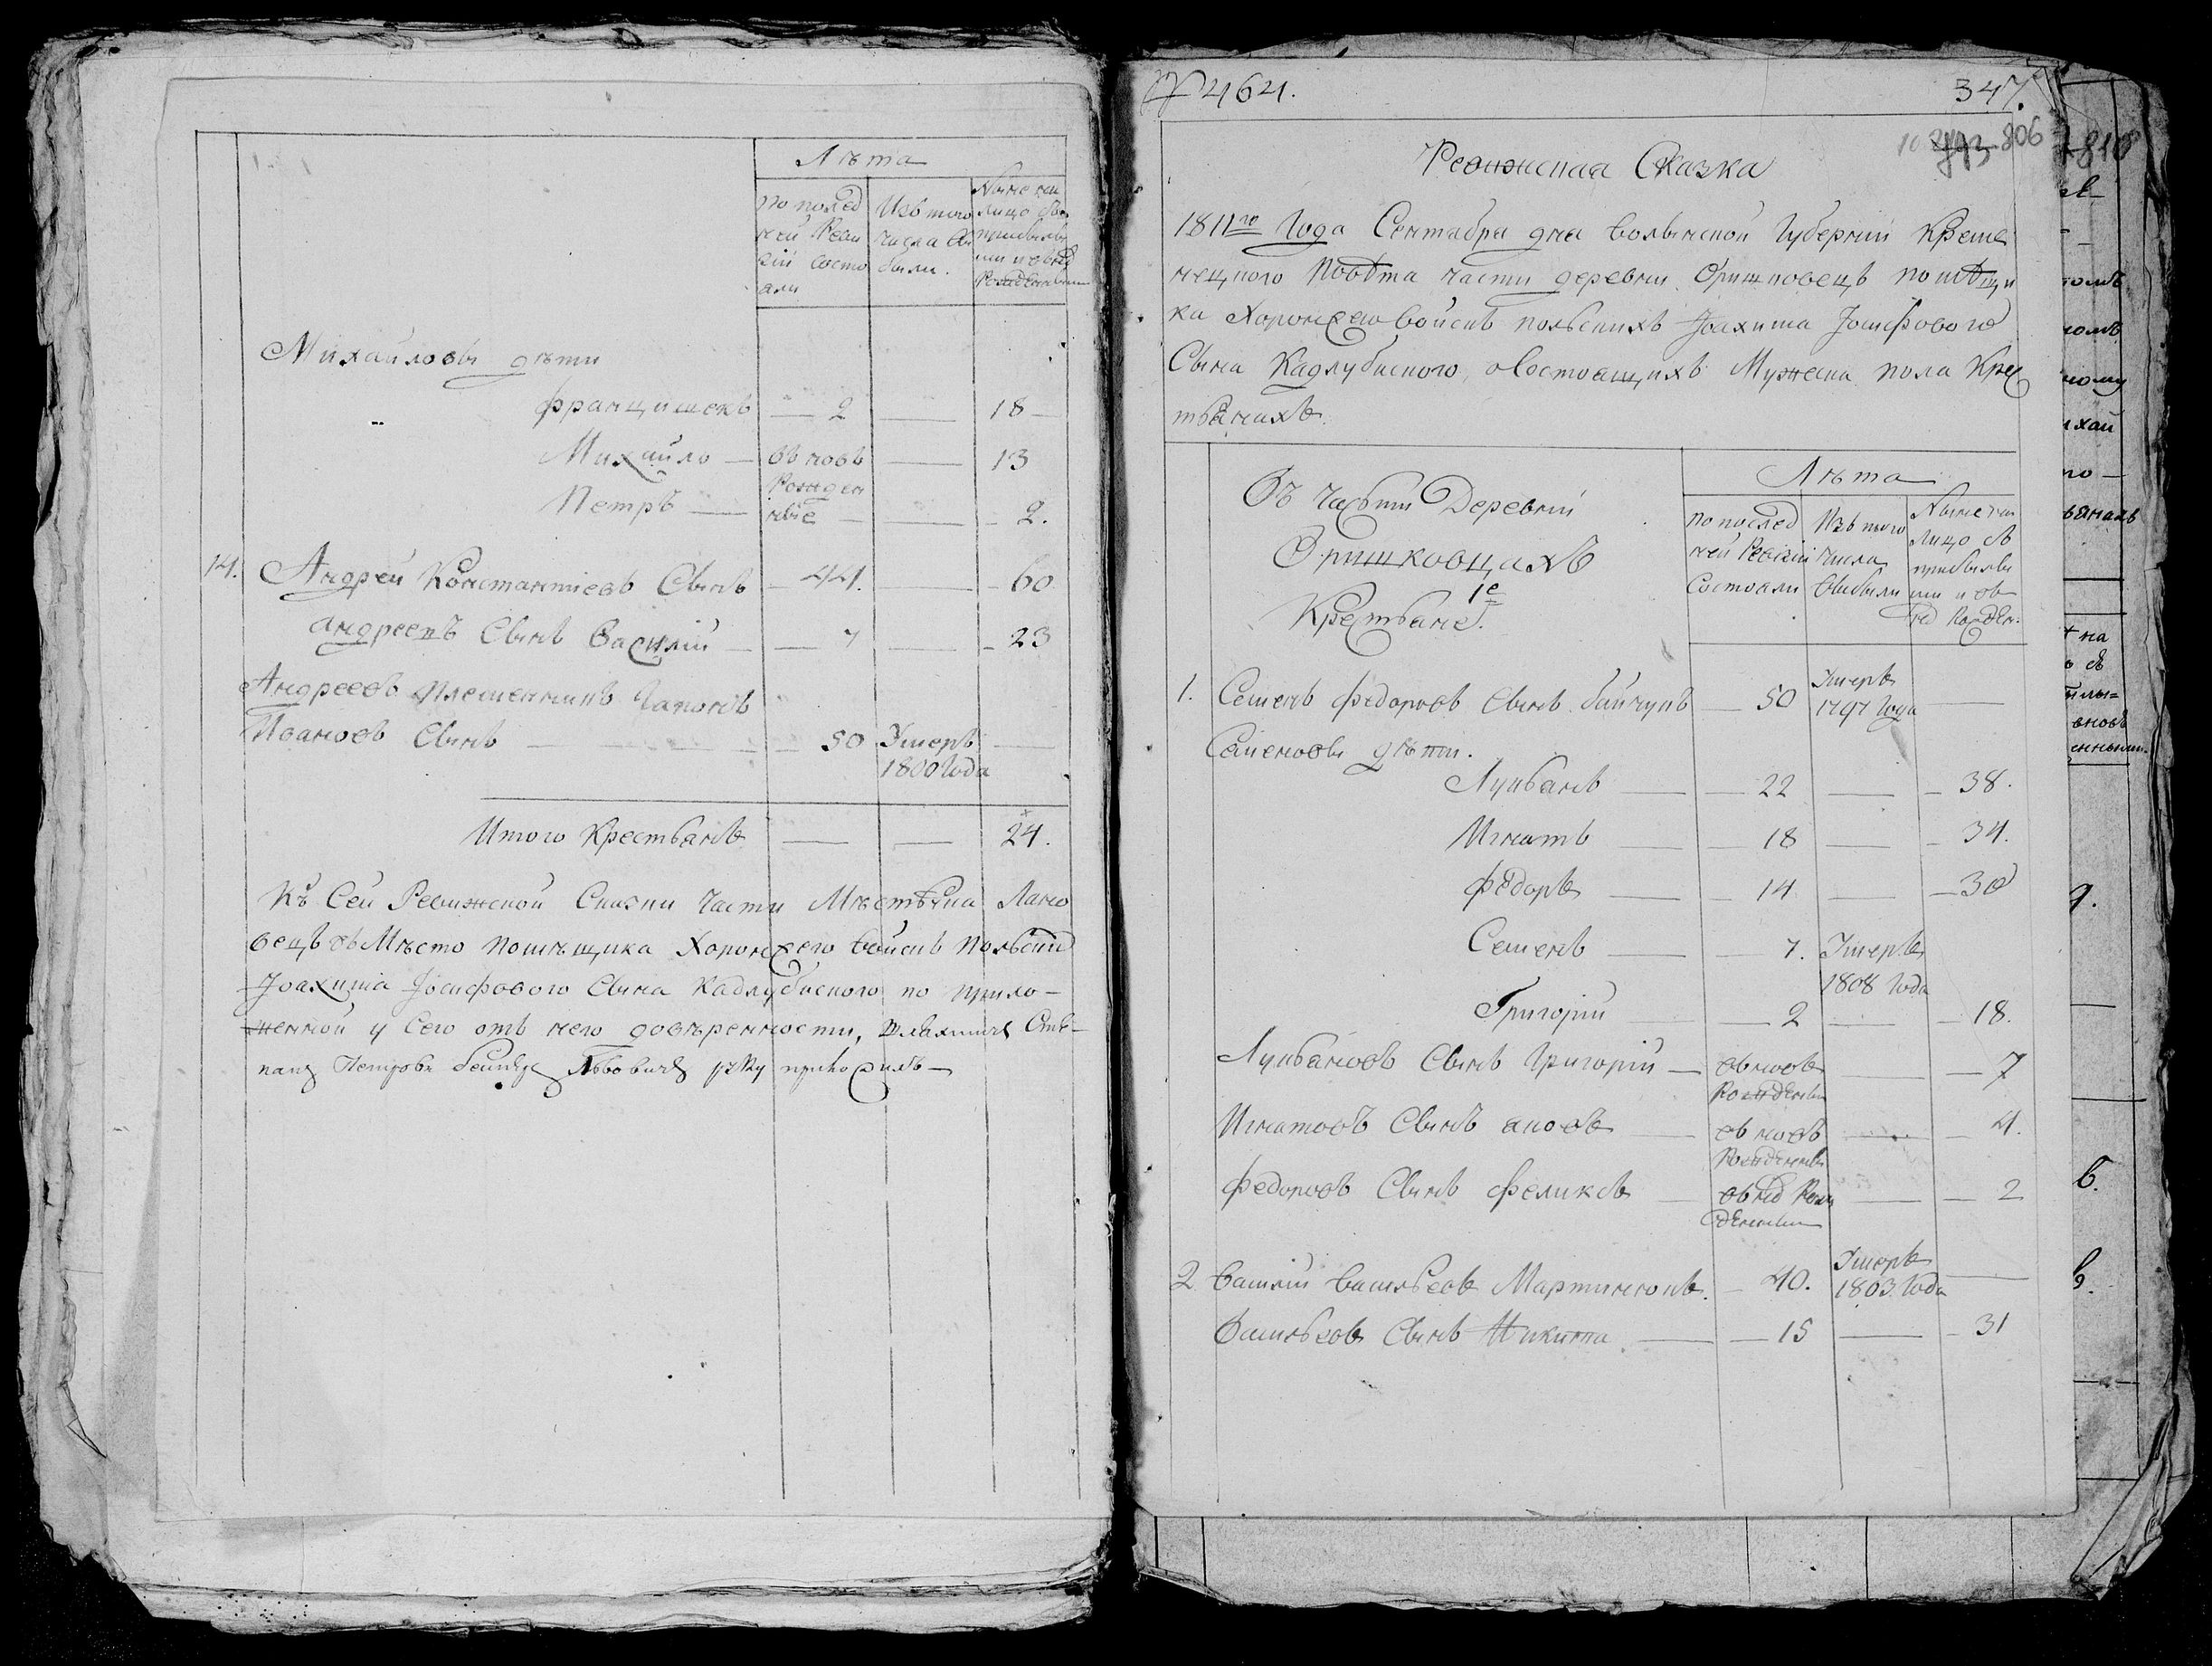 Лѣта
По послед
ней Реви
зіи состо
яли
Изъ того
числа вы
были.
Ныне на
лицо съ
прибывшы
ми и вновъ
Рожденным
Михайловы дѣти
Францишекъ — 2 — 18 —
Михайло — въ новъ — 13
Рожден
Петръ — ные — 2.
14. Андрей Константіевъ Сынъ — 44. — 60
Андреевъ Сынъ Василій — 7 — 23
Андреевъ племенникъ Гапонъ
Ивановъ Сынъ — 50 Умеръ —
1800 Года
Итого Крестьянъ — — 24.
Къ Сей Ревижской Сказки Части Мѣстечка Лано
вецъ въ Мѣсто помѣщика Хоронжего войскъ Польски
Іоахима Іосифового Сына Кадлубиского по прило-
женной у сего отъ него довѣренности, шляхтич Сте-
пан Петровъ Львович руку приложилъ —
№ 464.
347.
793
806
Ревижская Сказка
1811го Года Сентабра дня Волынской Губерніи Креме
нецкого Повѣта части деревни Оришковецъ помѣщи
ка Хоронжего войскъ польскихъ Іоахима Іосифового
Сына Кадлубиского, о Состоящихъ Мужеска пола Крес
тьянахъ.
Въ Части Деревни
Оришковцахъ
1е
Крестьане.
Лѣта
по послед
ней Ревизіи
Состояли
Изъ того
числа
выбыли
Ныне на
лицо съ
прибывшы
ми и въ
нов Рожден.
1. Семенъ Федоровъ Сынъ Байчукъ — 50 Умеръ —
1797 Года
Семеновы дѣти.
Лукьанъ — 22 — 38.
Игнатъ — 18 — 34.
Федоръ — 14 — 30
Семенъ — 7. Умеръ
1808 Года
Григорій — 2 — 18.
Лукьановъ Сынъ Григорій — въ новъ — 7
Рожденны
Игнатовъ Сынъ Яковъ — въ новъ — 4.
Рожденны
Федоровъ Сынъ Феликсъ — въ нов Рож — 2
денны
2 Василій Васильевъ Мартинюкъ. — 40. Умеръ —
1803 Года
Васильевъ Сынъ Никита — 15 — 31
818